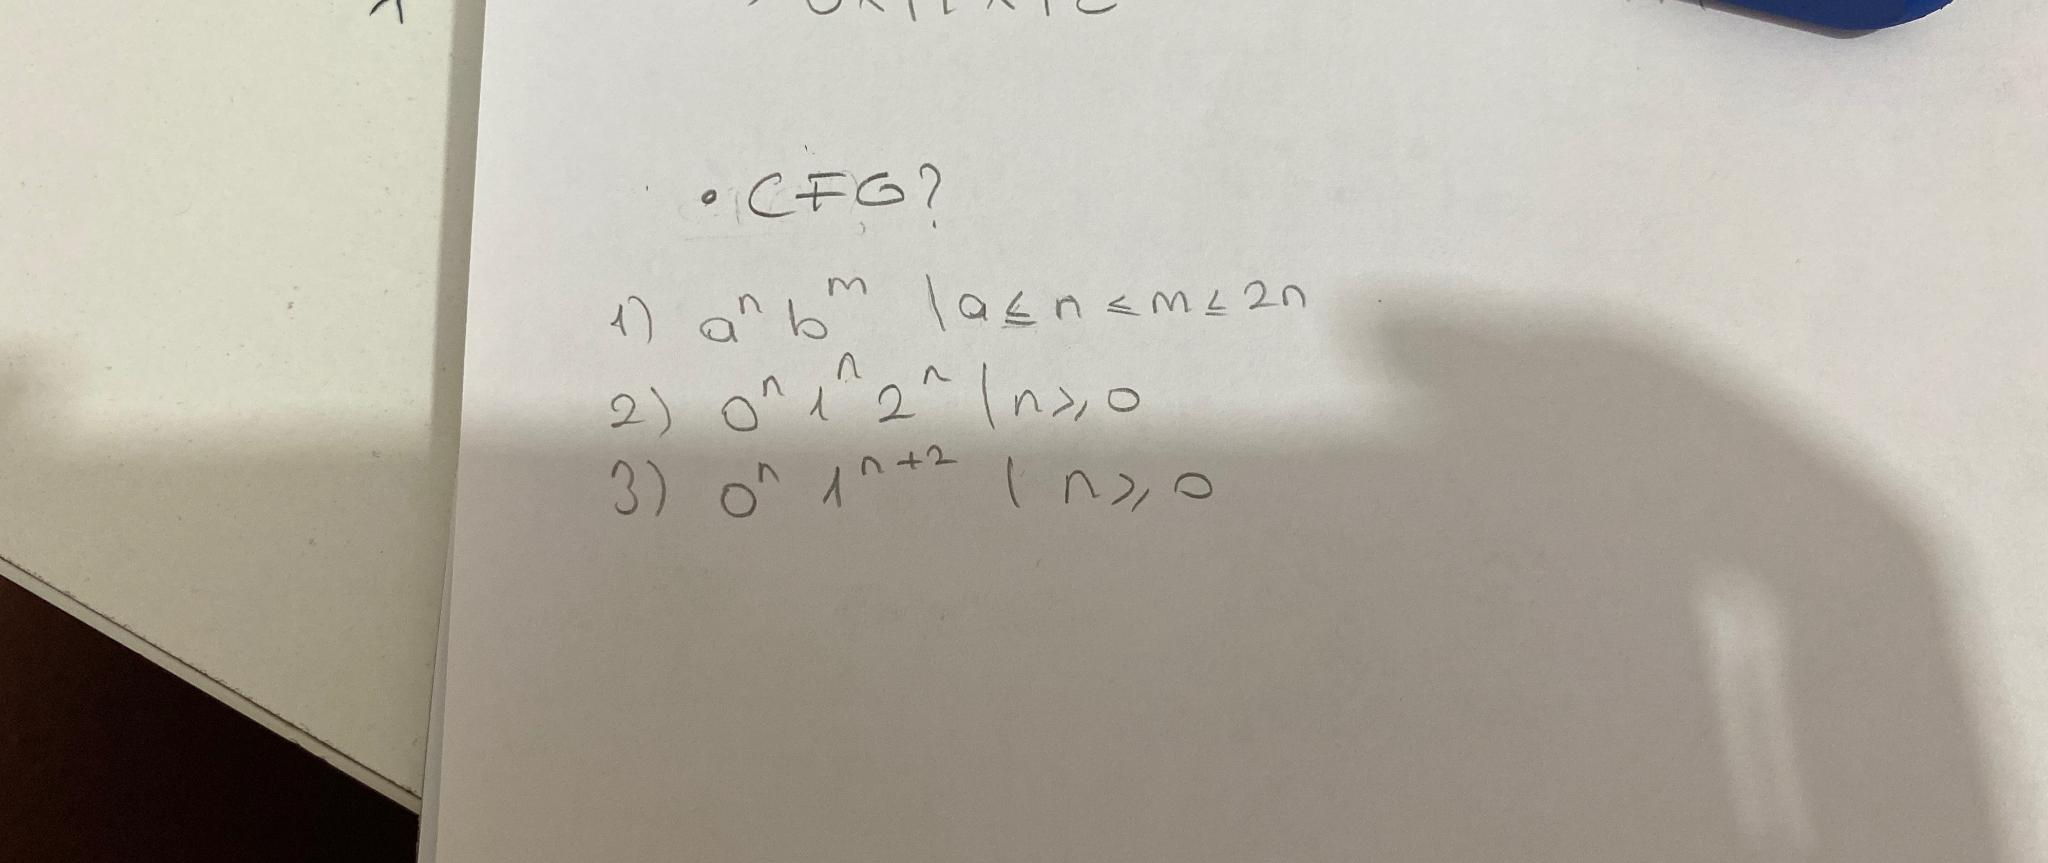 • CFG?
1) aⁿ bᵐ | a ≤ n ≤ m ≤ 2n
2) 0ⁿ 1ⁿ 2ⁿ | n ≥ 0
3) 0ⁿ 1ⁿ⁺² | n ≥ 0